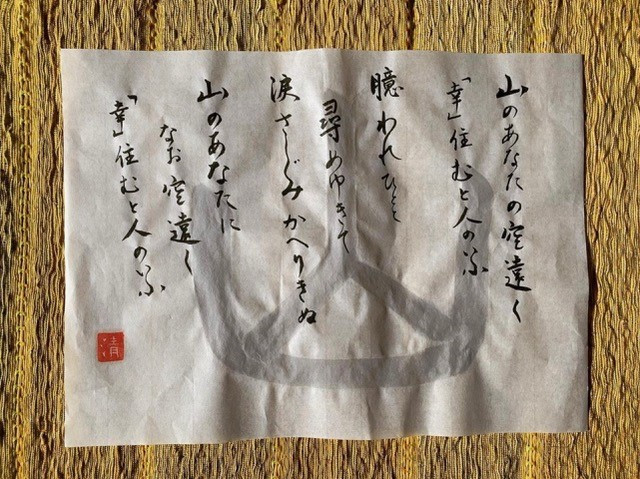 山のあなたの空遠く
「幸」住むと人のいふ
臆われひとと
尋めゆきて
涙さしぐみかへりきぬ
山のあなたに
なお空遠く
「幸」住むと人のいふ
清